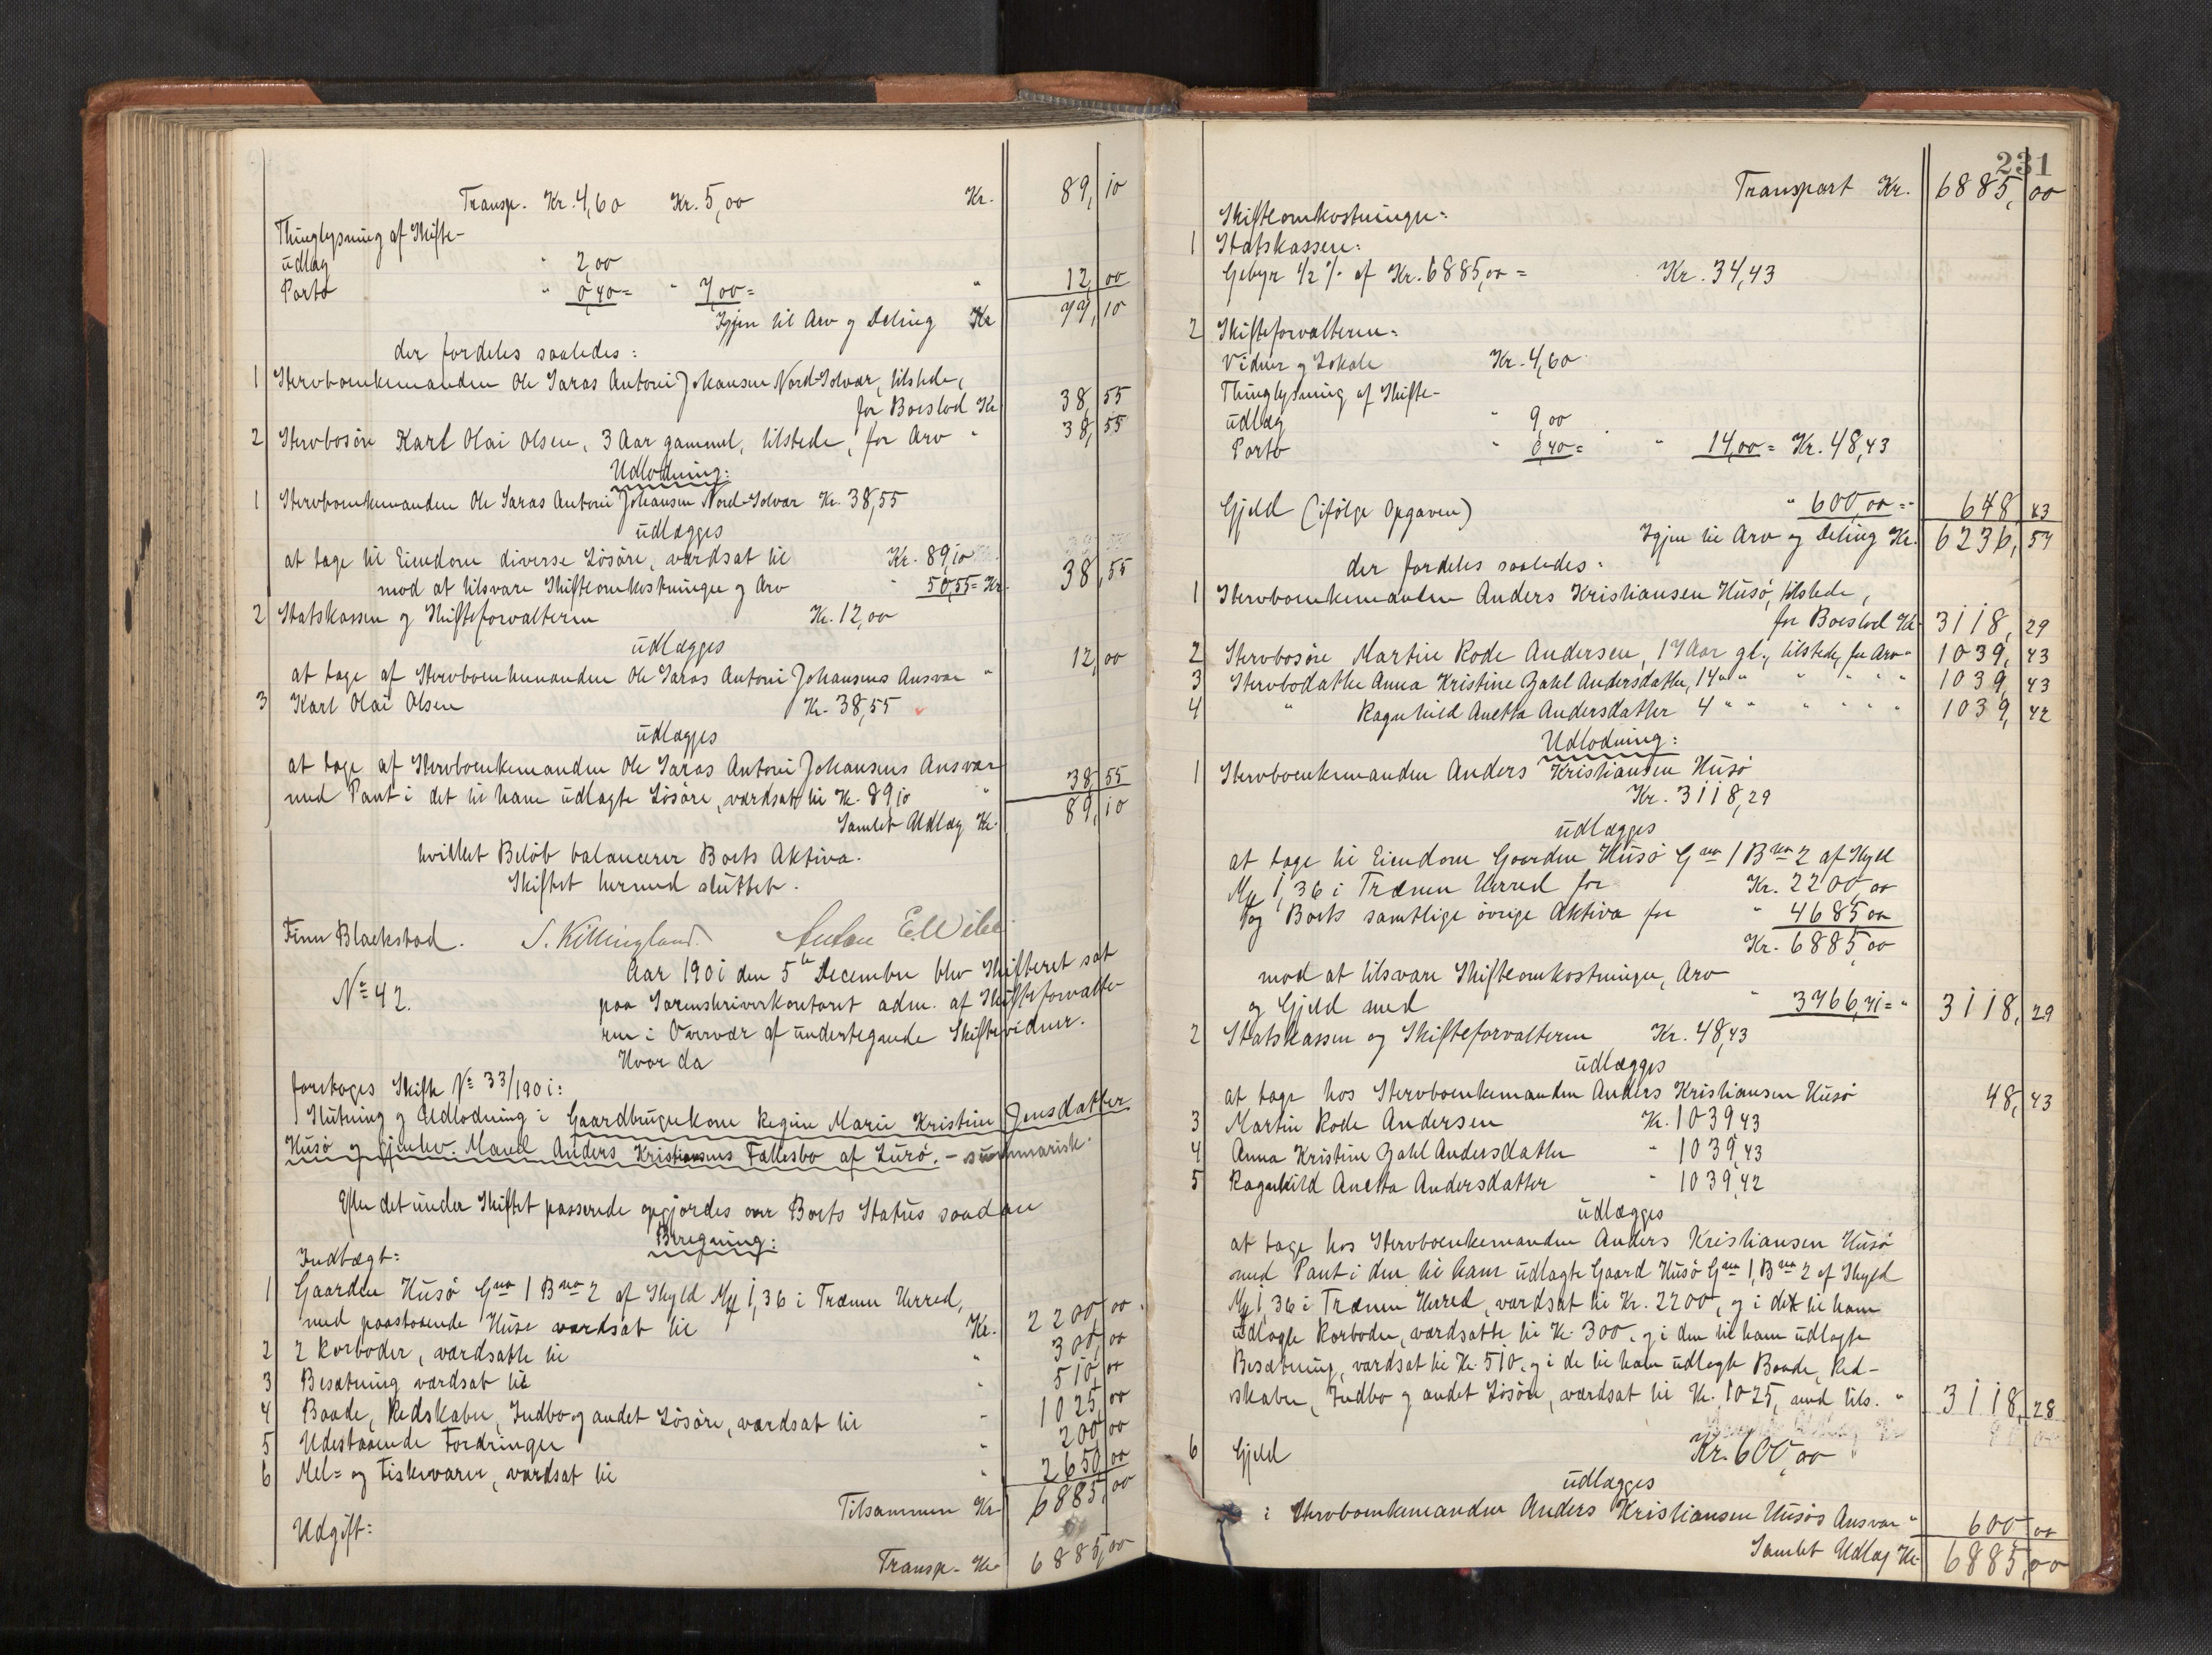 Transp. Kr. 4,60 Kr. 5,00 Kr. 89,10
Thinglysning af Skifte-
udlæg " 2,00
Porto " 0,40 = " 7,00 = " 12,00
Igjen til Arv og Deling Kr 77,10
der fordeles saaledes:
1 Stervboenkemanden Ole Saras Antoni Johansen Nord-Solvær, tilstede,
for Boeslod Kr 38,55
2 Stervbosøn Karl Olai Olsen, 3 Aar gammel, tilstede, for Arv " 38,55
Udlodning:
1 Stervboenkemanden Ole Saras Antoni Johansen Nord-Solvær Kr. 38,55
udlægges
at tage til Eiendom diverse Løsøre, værdsat til Kr. 89,10
mod at tilsvare Skifteomkostninger og Arv " 50,55 = Kr. 38,55
2 Statskassen og Skifteforvalteren Kr. 12,00
udlægges
at tage af Stervboenkemanden Ole Saras Antoni Johansens Ansvar " 12,00
3 Karl Olai Olsen Kr. 38,55
udlægges
at tage af Stervboenkemanden Ole Saras Antoni Johansens Ansvar
med Pant i det til ham udlagte Løsøre, værdsat til Kr. 89,10 " 38,55
Samlet Udlæg Kr. 89,10
hvilket Beløb balancerer Boets Aktiva.
Skiftet hermed sluttet.
Finn Blackstad. S. Killingland. Anton E. Wibe
Aar 1901 den 5te Decembre blev Skifteret sat
No 42. paa Sorenskriverkontoret adm. af Skifteforvalte-
ren i Overvær af undertegnede Skiftevidner.
Hvor da
foretoges Skifte No 33/1901:
Slutning og Udlodning i Gaardbrugerkone Regine Marie Kristine Jensdatter
Husø og gjenlev. Mand Anders Kristiansens Fællesbo af Lurø. - summarisk.
Efter det under Skiftet passerede opgjordes over Boets Status saadan
Beregning:
Indtægt:
1 Gaarden Husø Gno 1 Bno 2 af Skyld Mk 1,36 i Trænen Herred,
med paastaaende Huse værdsat til Kr. 2200,00
2 2 Rorboder, værdsatte til " 300,00
3 Besætning værdsat til " 510,00
4 Baade, Redskaber, Indbo og andet Løsøre, værdsat til " 1025,00
5 Udestaaende Fordringer " 200,00
6 Mel- og Fiskevarer, værdsat til " 2650,00
Tilsammen Kr. 6885,00
Udgift:
Transp. Kr. 6885,00
231
Transport Kr. 6885,00
Skifteomkostninger:
1 Statskassen:
Gebyr 1/2 % af Kr. 6885,00 = Kr. 34,43
2 Skifteforvalteren:
Vidner og Lokale Kr. 4,60
Thinglysning af Skifte-
udlæg " 9,00
Porto " 0,40 = " 14,00 = Kr. 48,43
Gjeld (ifølge Opgaven) " 600,00 = " 648,43
Igjen til Arv og Deling Kr. 6236,57
der fordeles saaledes:
1 Stervboenkemanden Anders Kristiansen Husø, tilstede,
for Boeslod Kr 3118,29
2 Stervbosøn Martin Rode Andersen, 17 Aar gl., tilstede, for Arv " 1039,43
3 Stervbodatter Anna Kristine Zahl Andersdatter, 14 " " " " " " 1039,43
4 " Ragnhild Anetta Andersdatter 4 " " " " " " 1039,42
Udlodning:
1 Stervboenkemanden Anders Kristiansen Husø
Kr. 3118,29
udlægges
at tage til Eiendom Gaarden Husø Gno 1 Bno 2 af Skyld
Mk 1,36 i Trænen Herred for Kr. 2200,00
og Boets samtlige øvrige Aktiva for " 4685,00
Kr. 6885,00
mod at tilsvare Skifteomkostninger, Arv
og Gjeld med " 3766,71 = " 3118,29
2 Statskassen og Skifteforvalteren Kr. 48,43
udlægges
at tage hos Stervboenkemanden Anders Kristiansen Husø 48,43
3 Martin Rode Andersen Kr. 1039,43
4 Anna Kristine Zahl Andersdatter " 1039,43
5 Ragnhild Anetta Andersdatter " 1039,42
udlægges
at tage hos Stervboenkemanden Anders Kristiansen Husø
med Pant i den til ham udlagte Gaard Husø Gno 1, Bno 2 af Skyld
Mk 1,36 i Trænen Herred, værdsat til Kr. 2200, og i de til ham
udlagte Rorboder, værdsatte til Kr. 300, og i den til ham udlagte
Besætning, værdsat til Kr. 510, og i de til ham udlagte Baade, Red-
skaber, Indbo og andet Løsøre, værdsat til Kr. 1025, med tils. " 3118,28
6 Gjeld Kr. 600,00
udlægges
i Stervboenkemanden Anders Kristiansen Husøs Ansvar " 600,00
Samlet Udlæg Kr. 6885,00